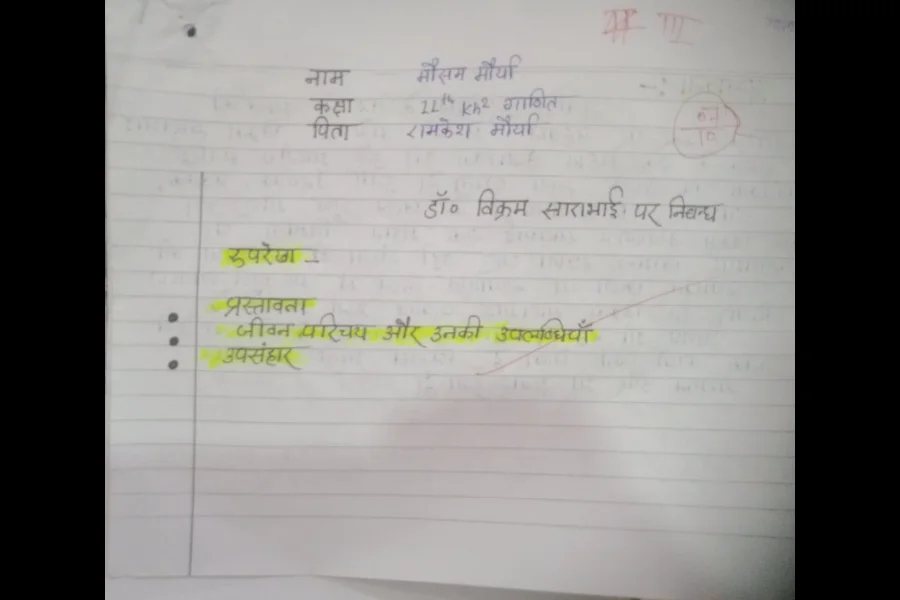 नाम मौसम मौर्या
कक्षा 11th kh2 गणित
पिता रामकेश मौर्या
07
10
डॉ० विक्रम साराभाई पर निबन्ध
रुपरेखा -
प्रस्तावना
जीवन परिचय और उनकी उपलब्धियाँ
उपसंहार